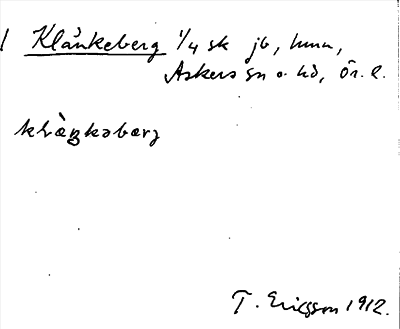 1 Klånkeberg 1/4 sk jb, hmn,
Askers sn o. hd, Ör. l.
T. Ericsson 1912.